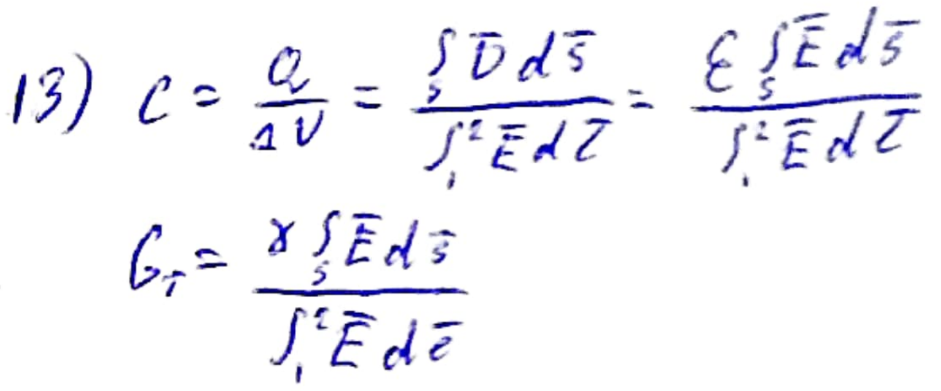 13) C = Q/ΔU = ∫_S D̄ d s̄ / ∫_1^2 Ē d l̄ = ε ∫_S Ē d s̄ / ∫_1^2 Ē d l̄
G_T = γ ∫_S Ē d s̄ / ∫_1^2 Ē d l̄